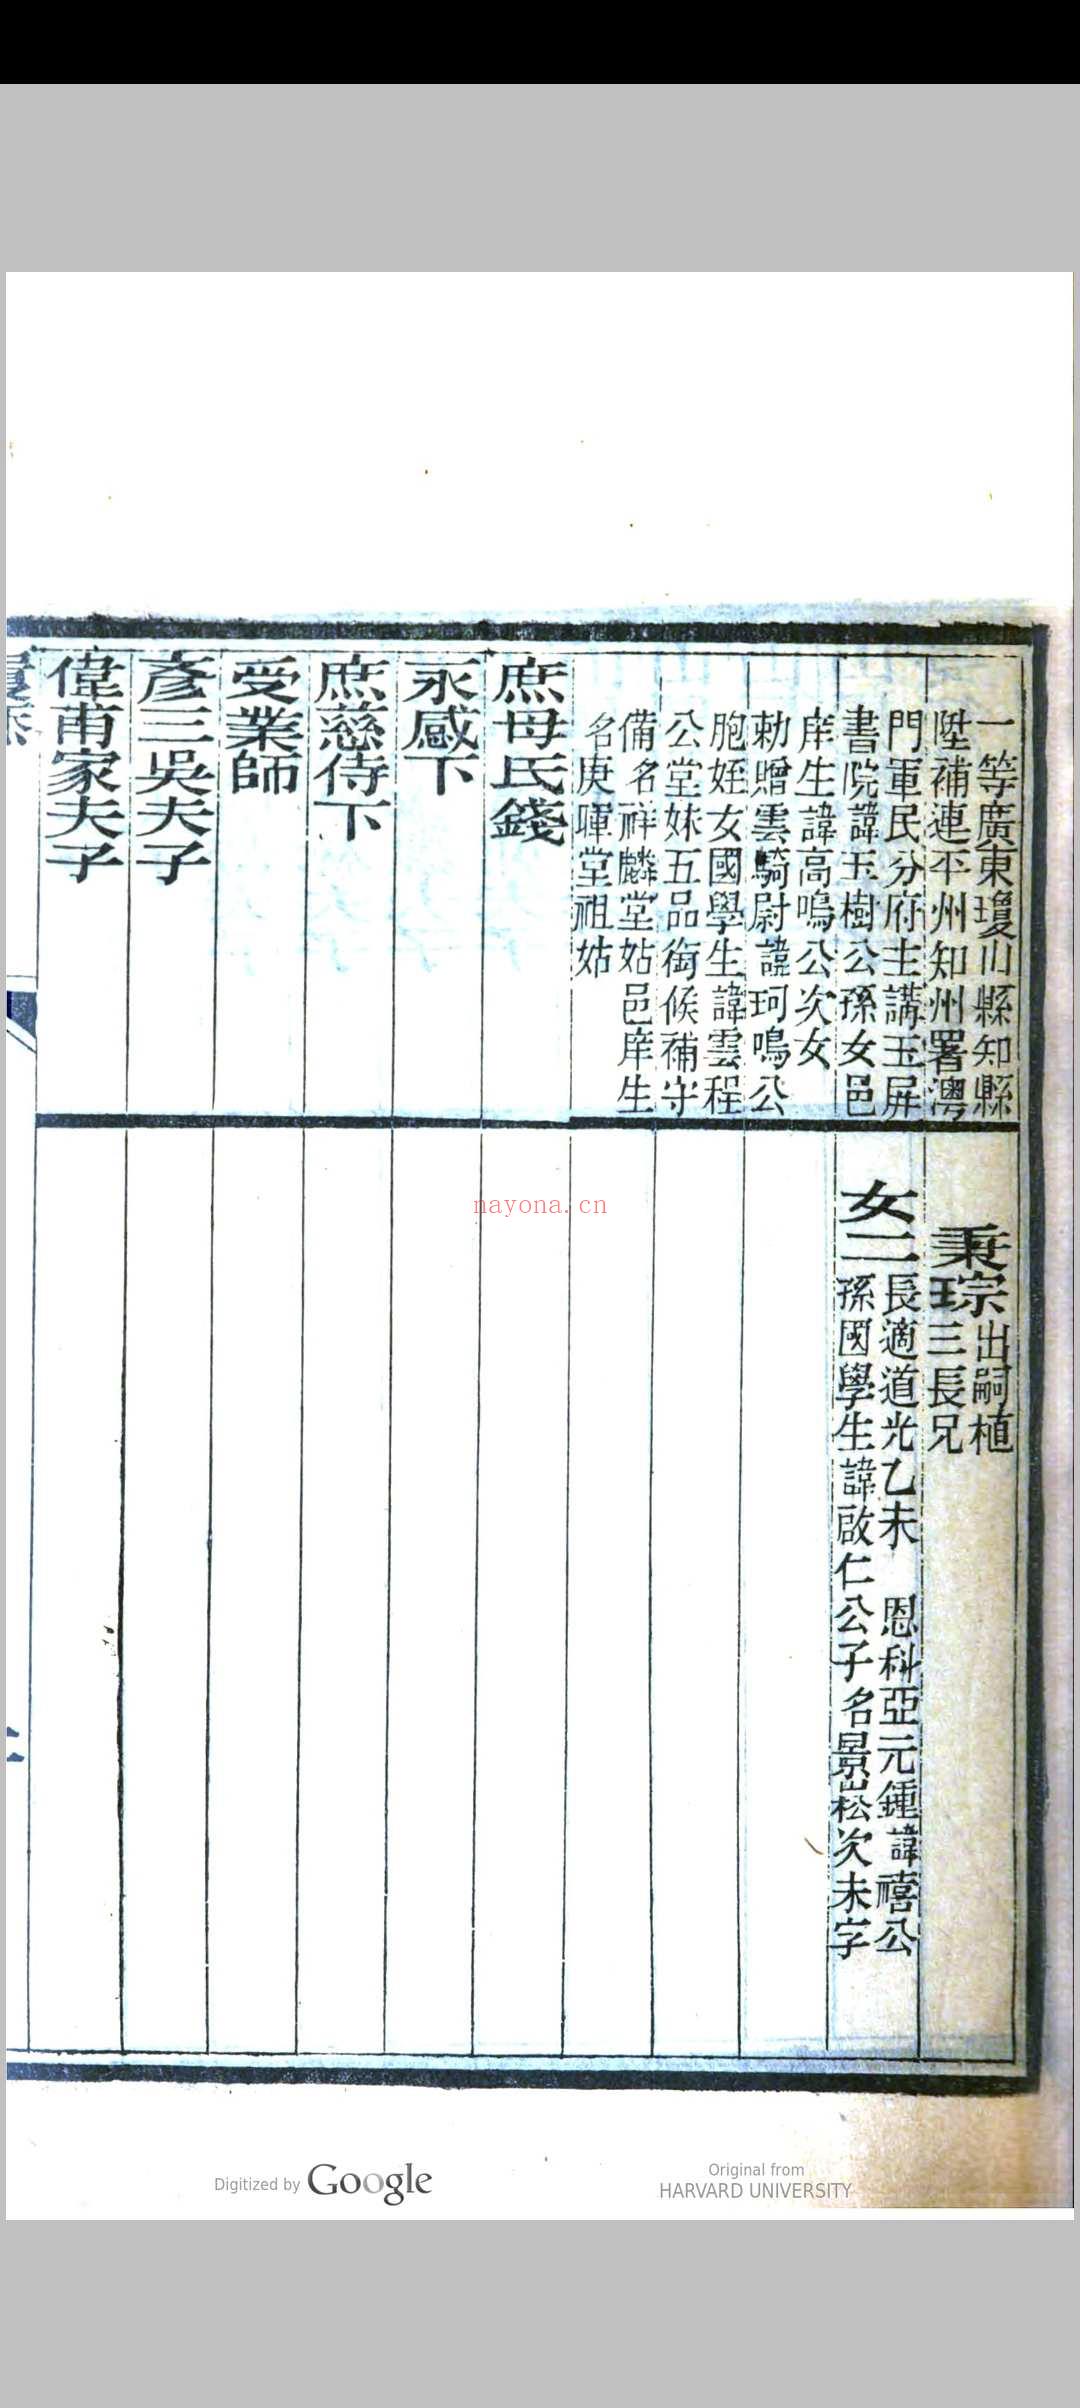 一等廣東瓊川縣知縣
陞補連平州知州署澳
門軍民分府主講玉屏
書院諱玉樹公孫女邑
庠生諱高鳴公次女
勅贈雲騎尉諱珂鳴公
胞姪女國學生諱雲程
公堂妹五品銜候補守
備名祥麟堂姑邑庠生
名庚暉堂祖姑
庶母氏錢
永感下
庶慈侍下
受業師
彥三吳夫子
偉甫家夫子
秉琮出嗣植
三長兄
女二長適道光乙未 恩科亞元鍾諱禧公
孫國學生諱啟仁公子名景崧次未字
nayona.cn
Digitized by Google
Original from
HARVARD UNIVERSITY